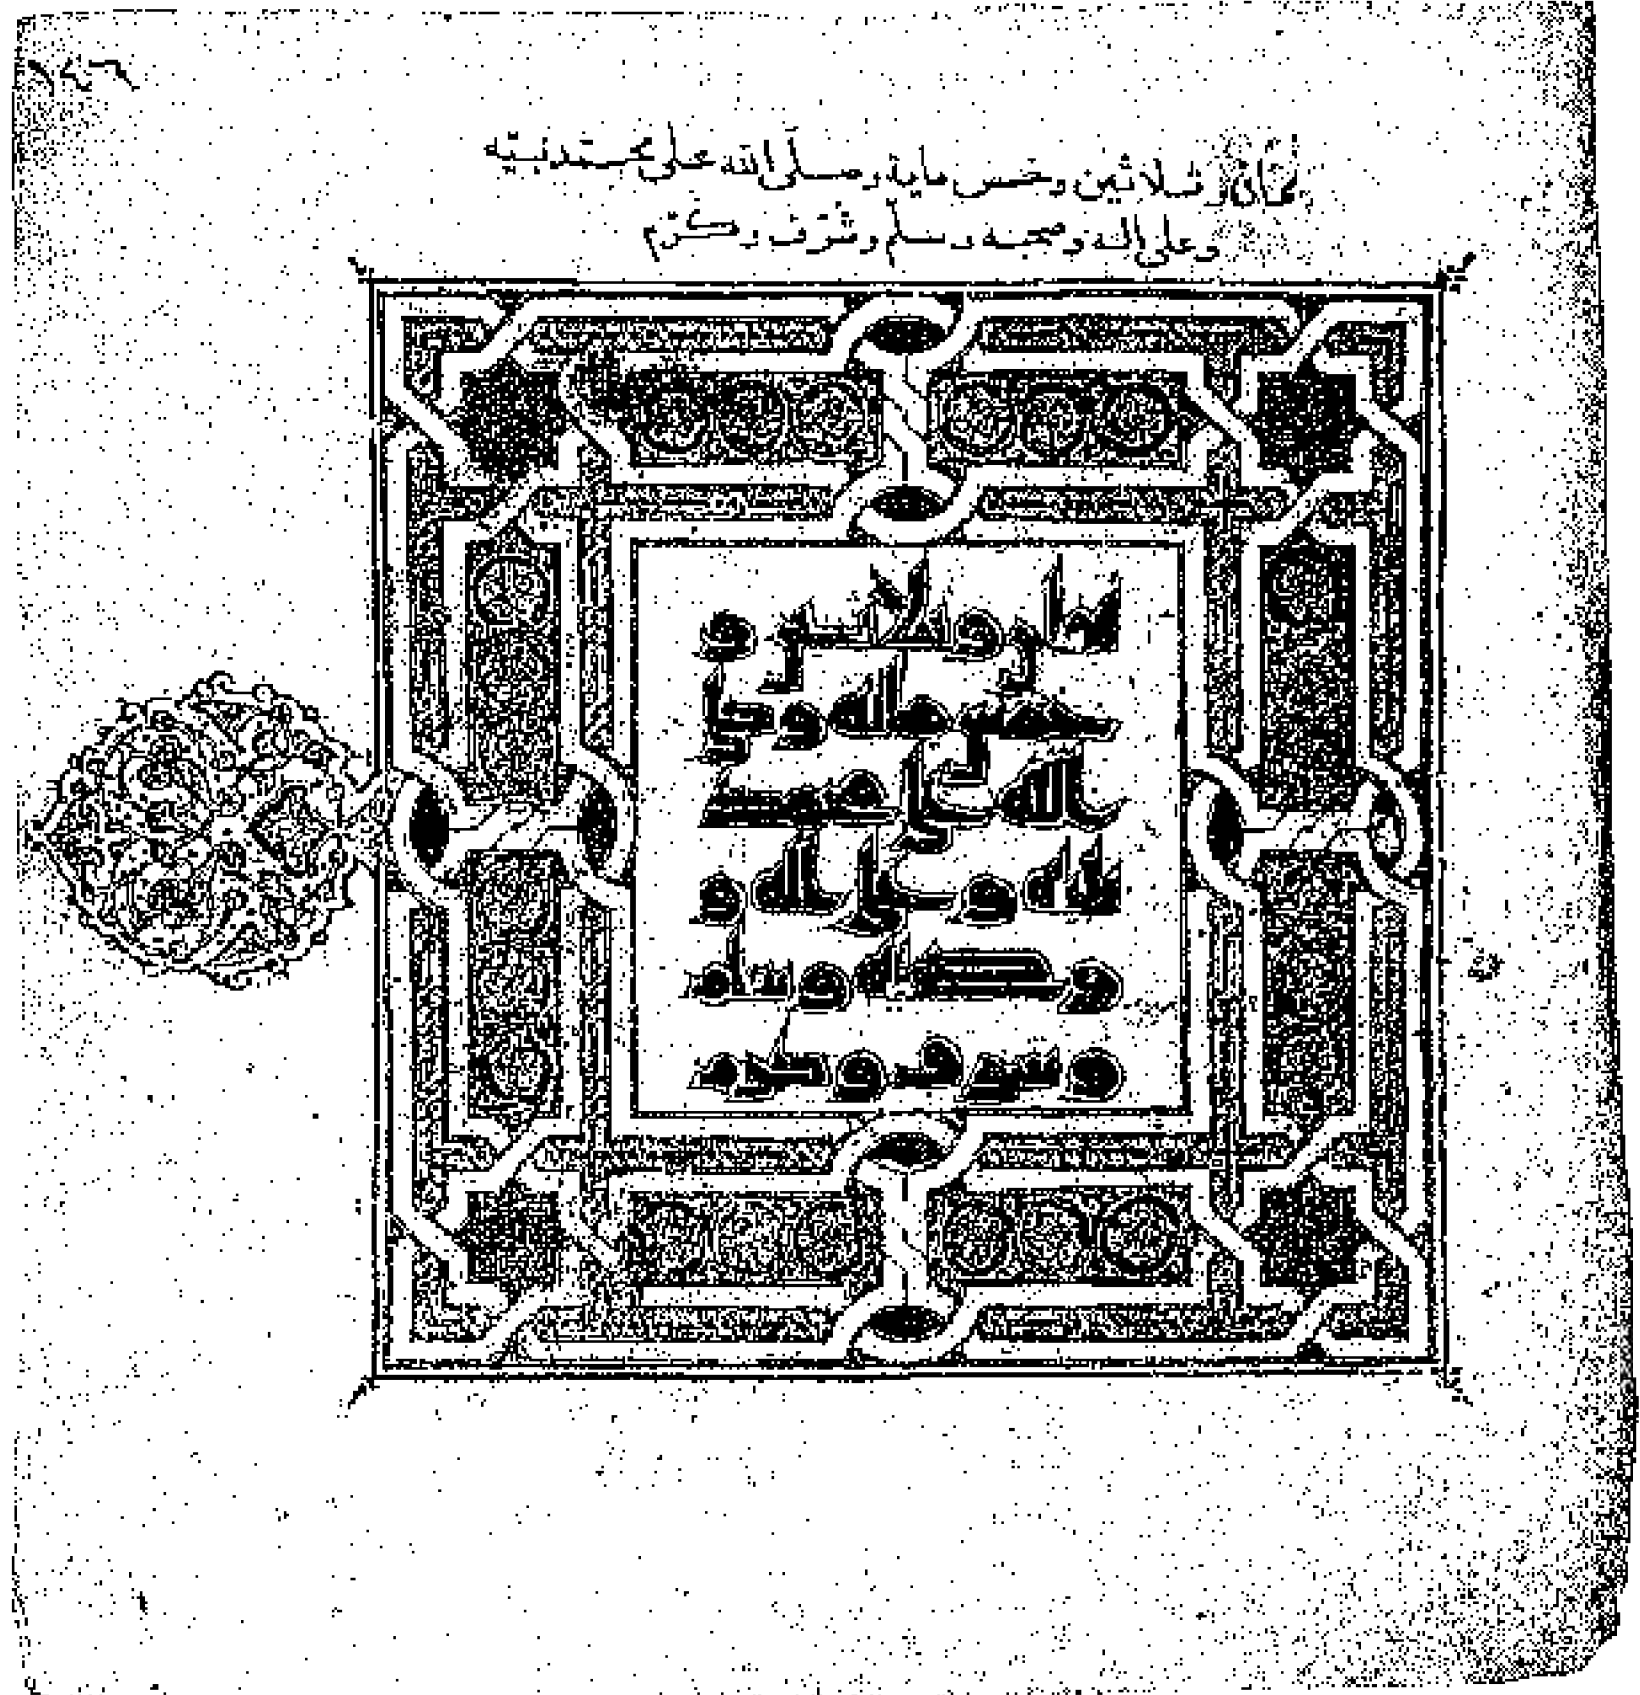 ١٤٦
ثمان وثلاثين وخمس ماية وصلى الله على محمد نبيه
وعلى اله وصحبه وسلم وشرف وكرم
ثمان وثلاثين و
خمس مايه وصلى
الله على محمد
نبيه وعلى اله و
وصحبه وسلم
وشرف وكرم